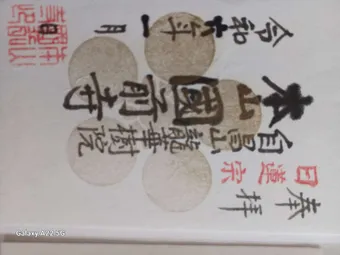 奉拝
日蓮宗
自昌山
龍華樹院
本山 國前寺
令和六年一月 日
Galaxy A22 5G